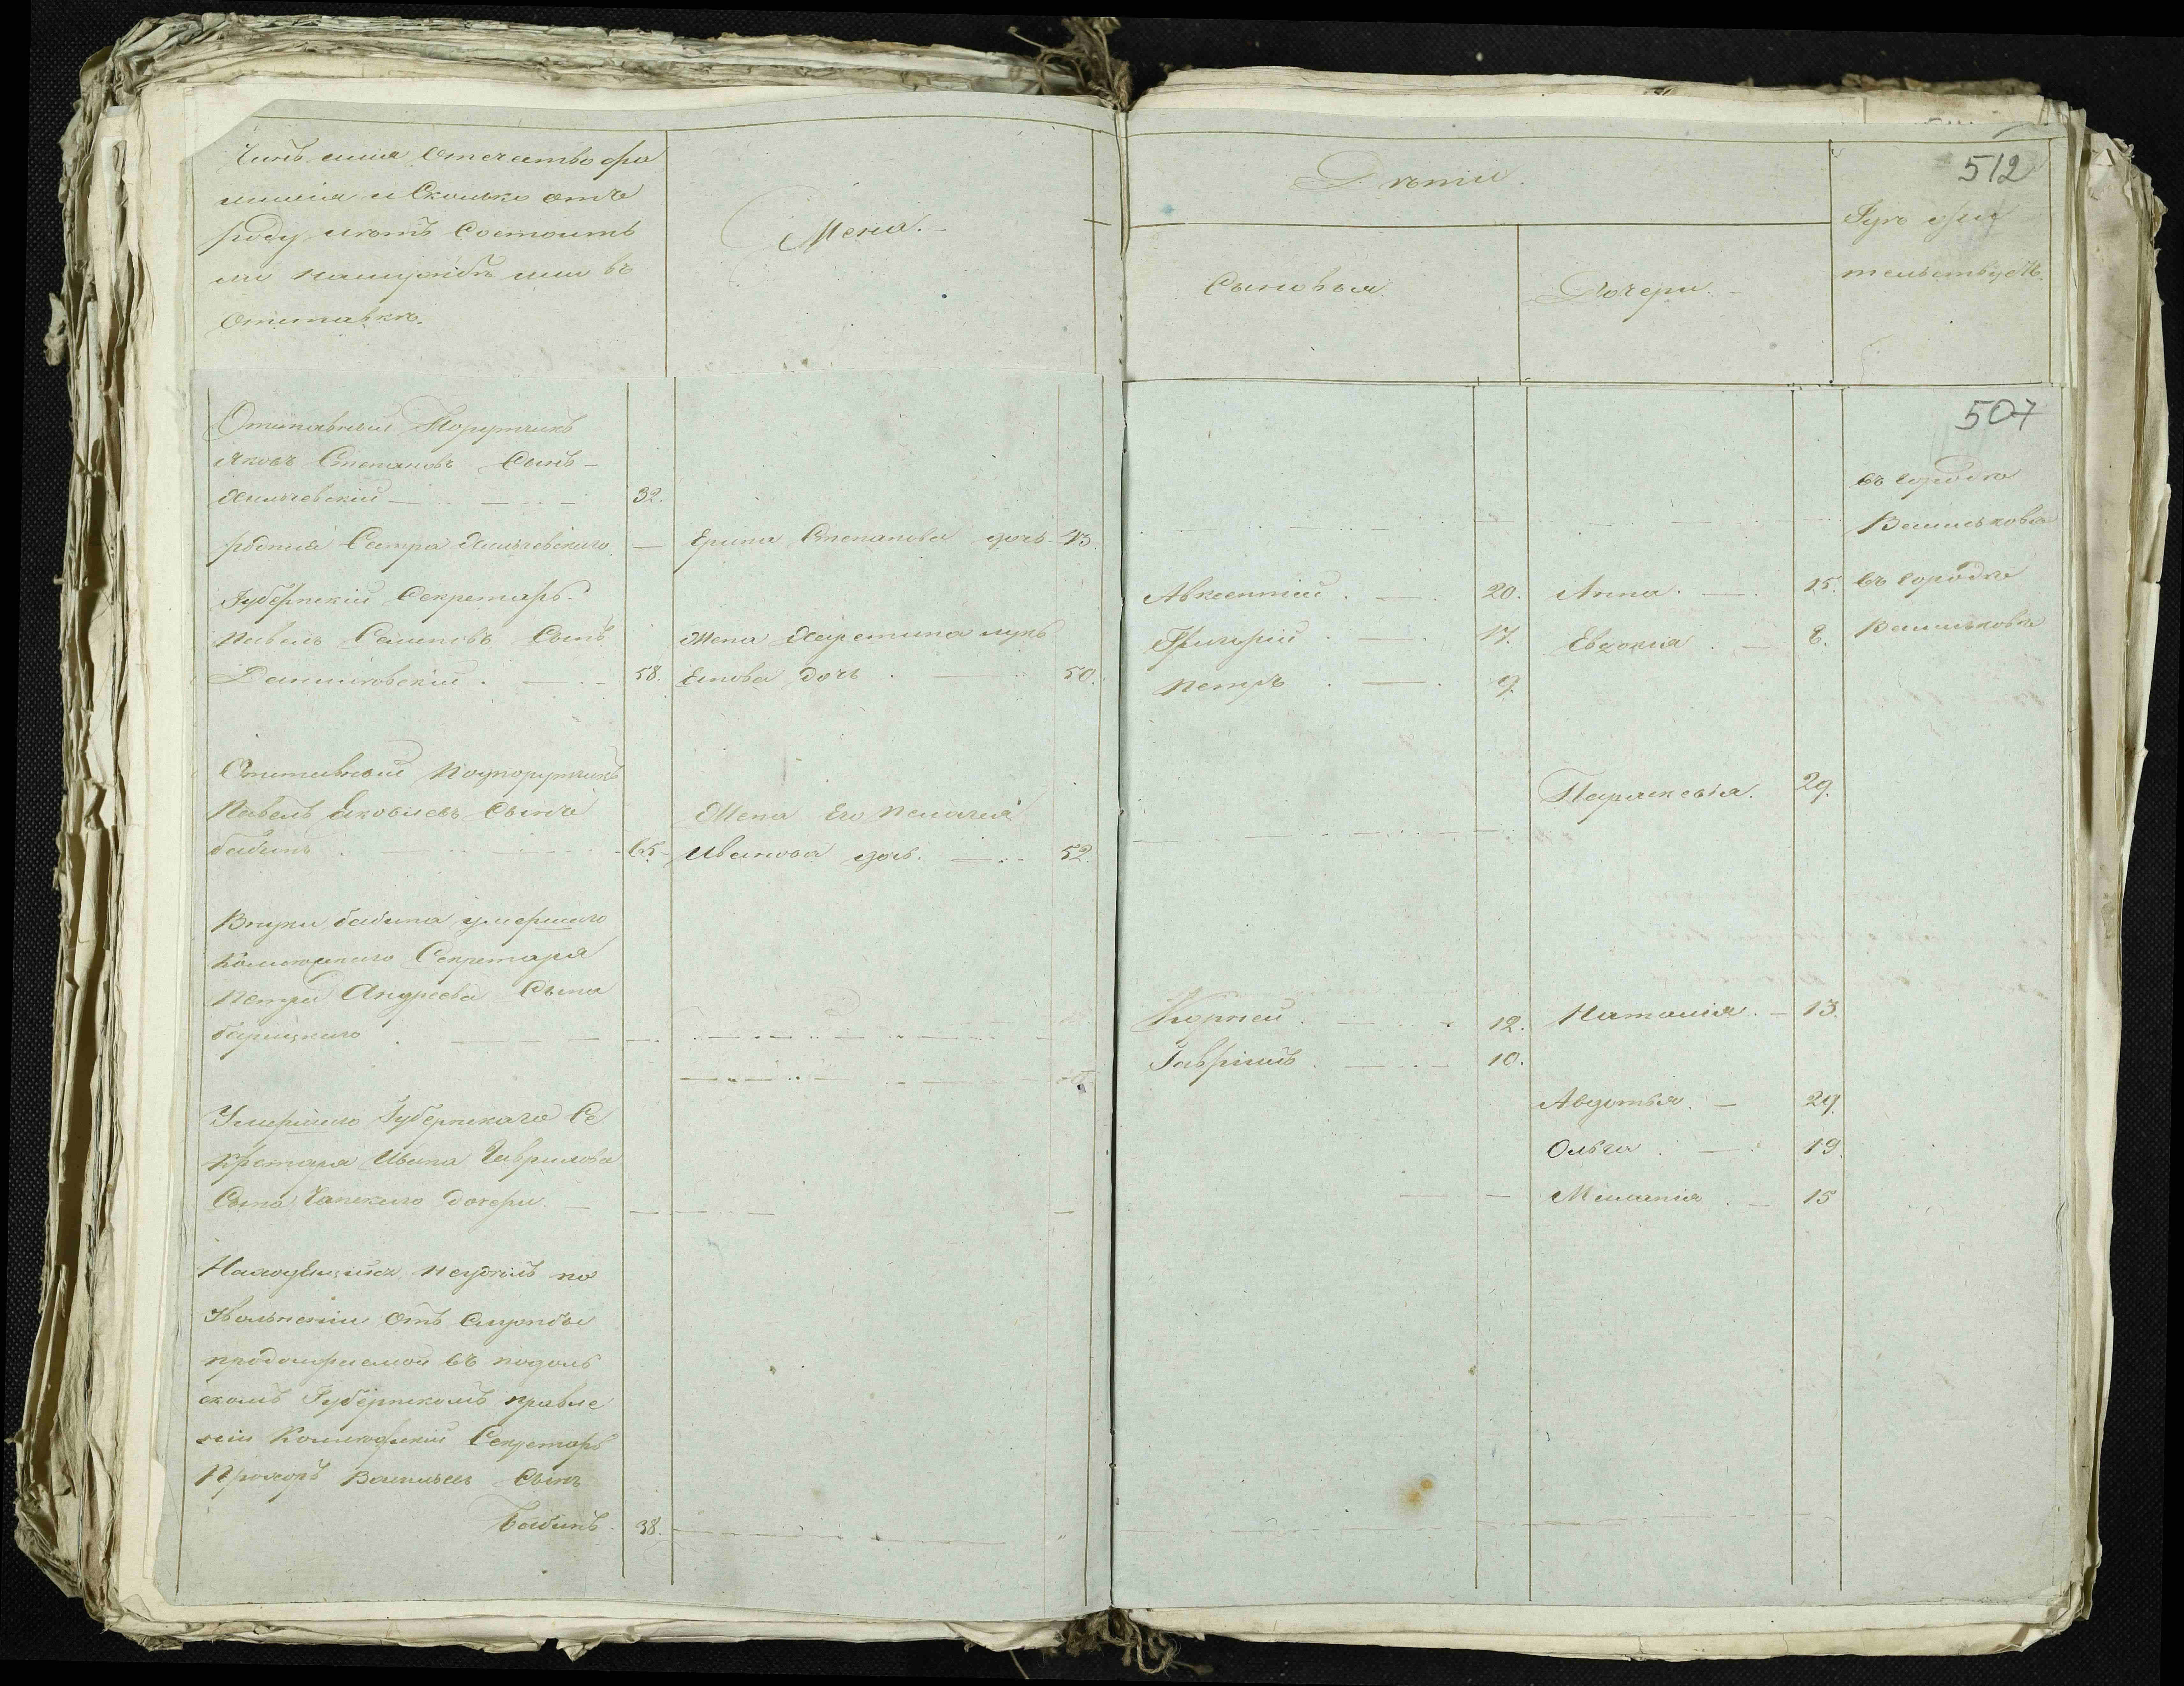 Чинъ имя Отечество фа
милія и Сколько отъ
роду лѣтъ Состоитъ
ли наслужбѣ или въ
Отставкѣ.
Жена.
Дѣти.
Сыновья.
Дочери.
512
Гдѣ жи
тельствуетъ.
507
Отставный Порутчикъ
Яковъ Степановъ Сынъ
32.
родная Сестра
Ерина Степанова дочь
въ городѣ
Васильковѣ
Губернскій Секретарь
Павелъ Семеновъ Сынъ
Данилковскій 58.
Жена Харетина Лукъ
Енова дочь 50.
Авксентій 20.
Григорій 17.
Петръ 9.
Анна 15.
Евдокия 8.
въ городѣ
Васильковѣ
Отставный Подпорутчикъ
Павелъ Яковлевъ Сынъ
бабинъ 65
Жена Его Пелагея
Иванова дочь 52.
Параскевья 29.
Внуки бабина умершаго
Колежскаго Секретаря
Петра Андреева Сына
Корней 12.
Гаврiилъ 10.
Наталия 13.
Умершаго Губернскаго Се
кретаря Ивана Гаврилова
Сына дочери
Авдотья 29.
Ольга 19.
Миланiя 15
Находящийся по
Увольненіи отъ Службы
въ Подоль
скомъ Губернскомъ правле
ніи Колежскій Секретарь
Прохоръ Васильевъ Сынъ
Бабинъ 38.